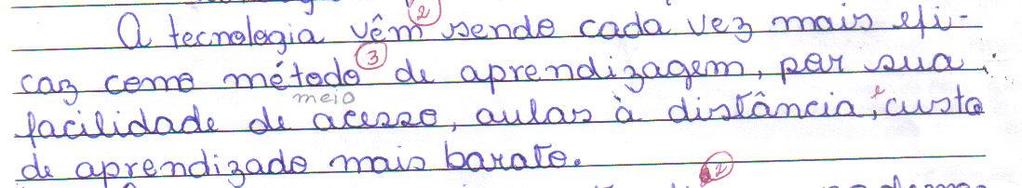 A tecnologia vêm sendo cada vez mais efi-
caz como método de aprendizagem, por sua
facilidade de acesso, aulas à distância, custo
de aprendizado mais barato.
2
3
meio
e
2